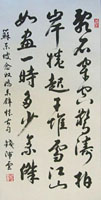 乱石穿空驚濤拍
岸捲起千堆雪江山
如畫一時多少豪傑
蘇東坡念奴嬌赤壁懷古句 錢沛雲